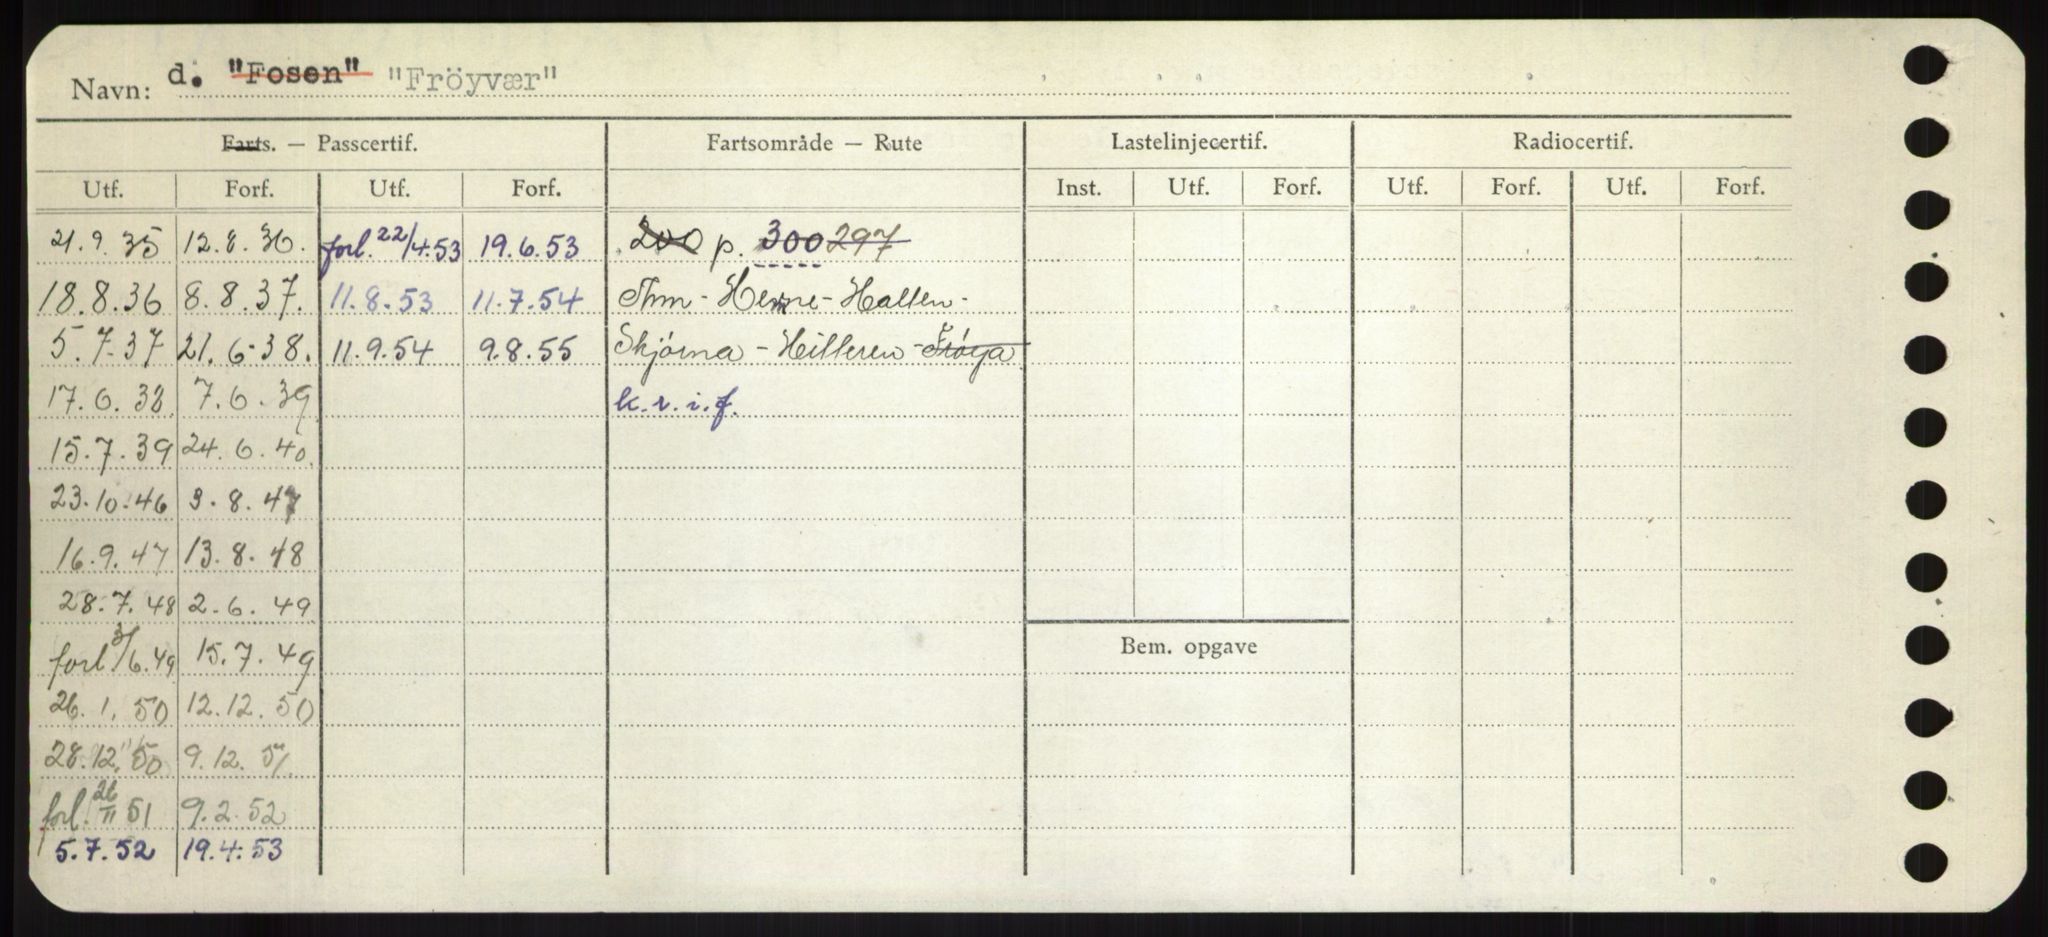 Navn: d. "Fosen" "Fröyvær"
Farts. — Passcertif. Fartsområde — Rute Lastelinjecertif. Radiocertif.
Utf. Forf. Utf. Forf. Inst. Utf. Forf. Utf. Forf. Utf. Forf.
21.9.35 12.8.36. forl. 22/4.53 19.6.53 200 p. 300 297
18.8.36 8.8.37. 11.8.53 11.7.54 Thm - Hemne - Halten -
5.7.37 21.6-38. 11.9.54 9.8.55 Skjörna - Hitteren - Fröya
17.6.38. 7.6.39 k.r.i.f.
15.7.39 24.6.40.
23.10.46 3.8.47
16.9.47 13.8.48
28.7.48 2.6.49
forl. 3/6.49 15.7.49
26.1.50 12.12.50
28.12.50 9.12.51.
forl. 26/11 51 9.2.52
5.7.52 19.4.53
Bem. opgave